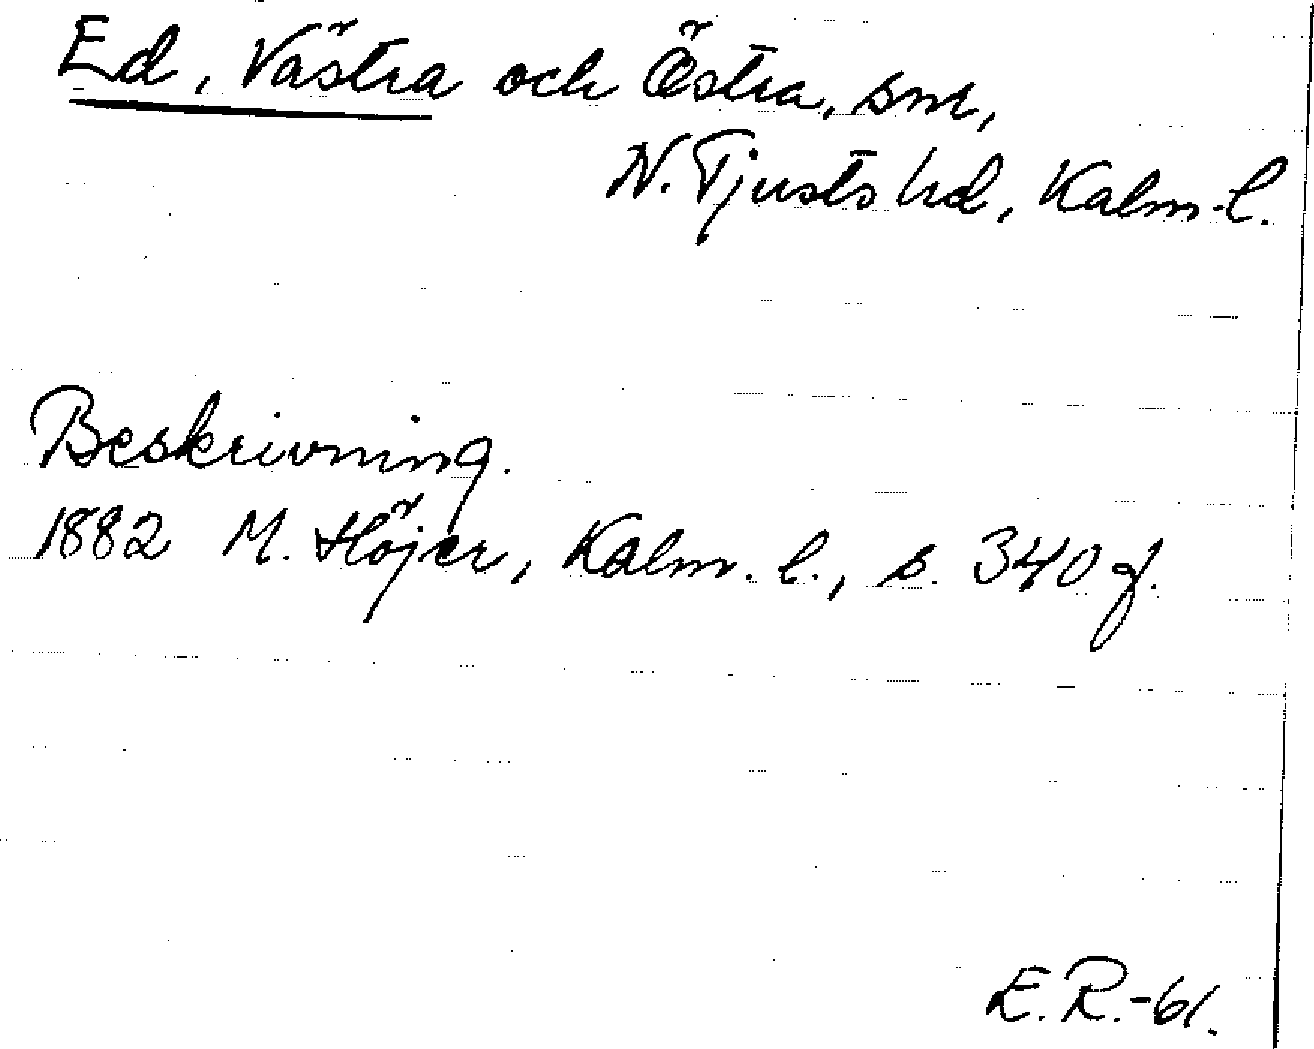 Ed, Västra och Östra, snr,
N. Tjusts hd, Kalm. l.
Beskrivning.
1882 M. Höjer, Kalm. l., s. 340 f.
E.R.-61.